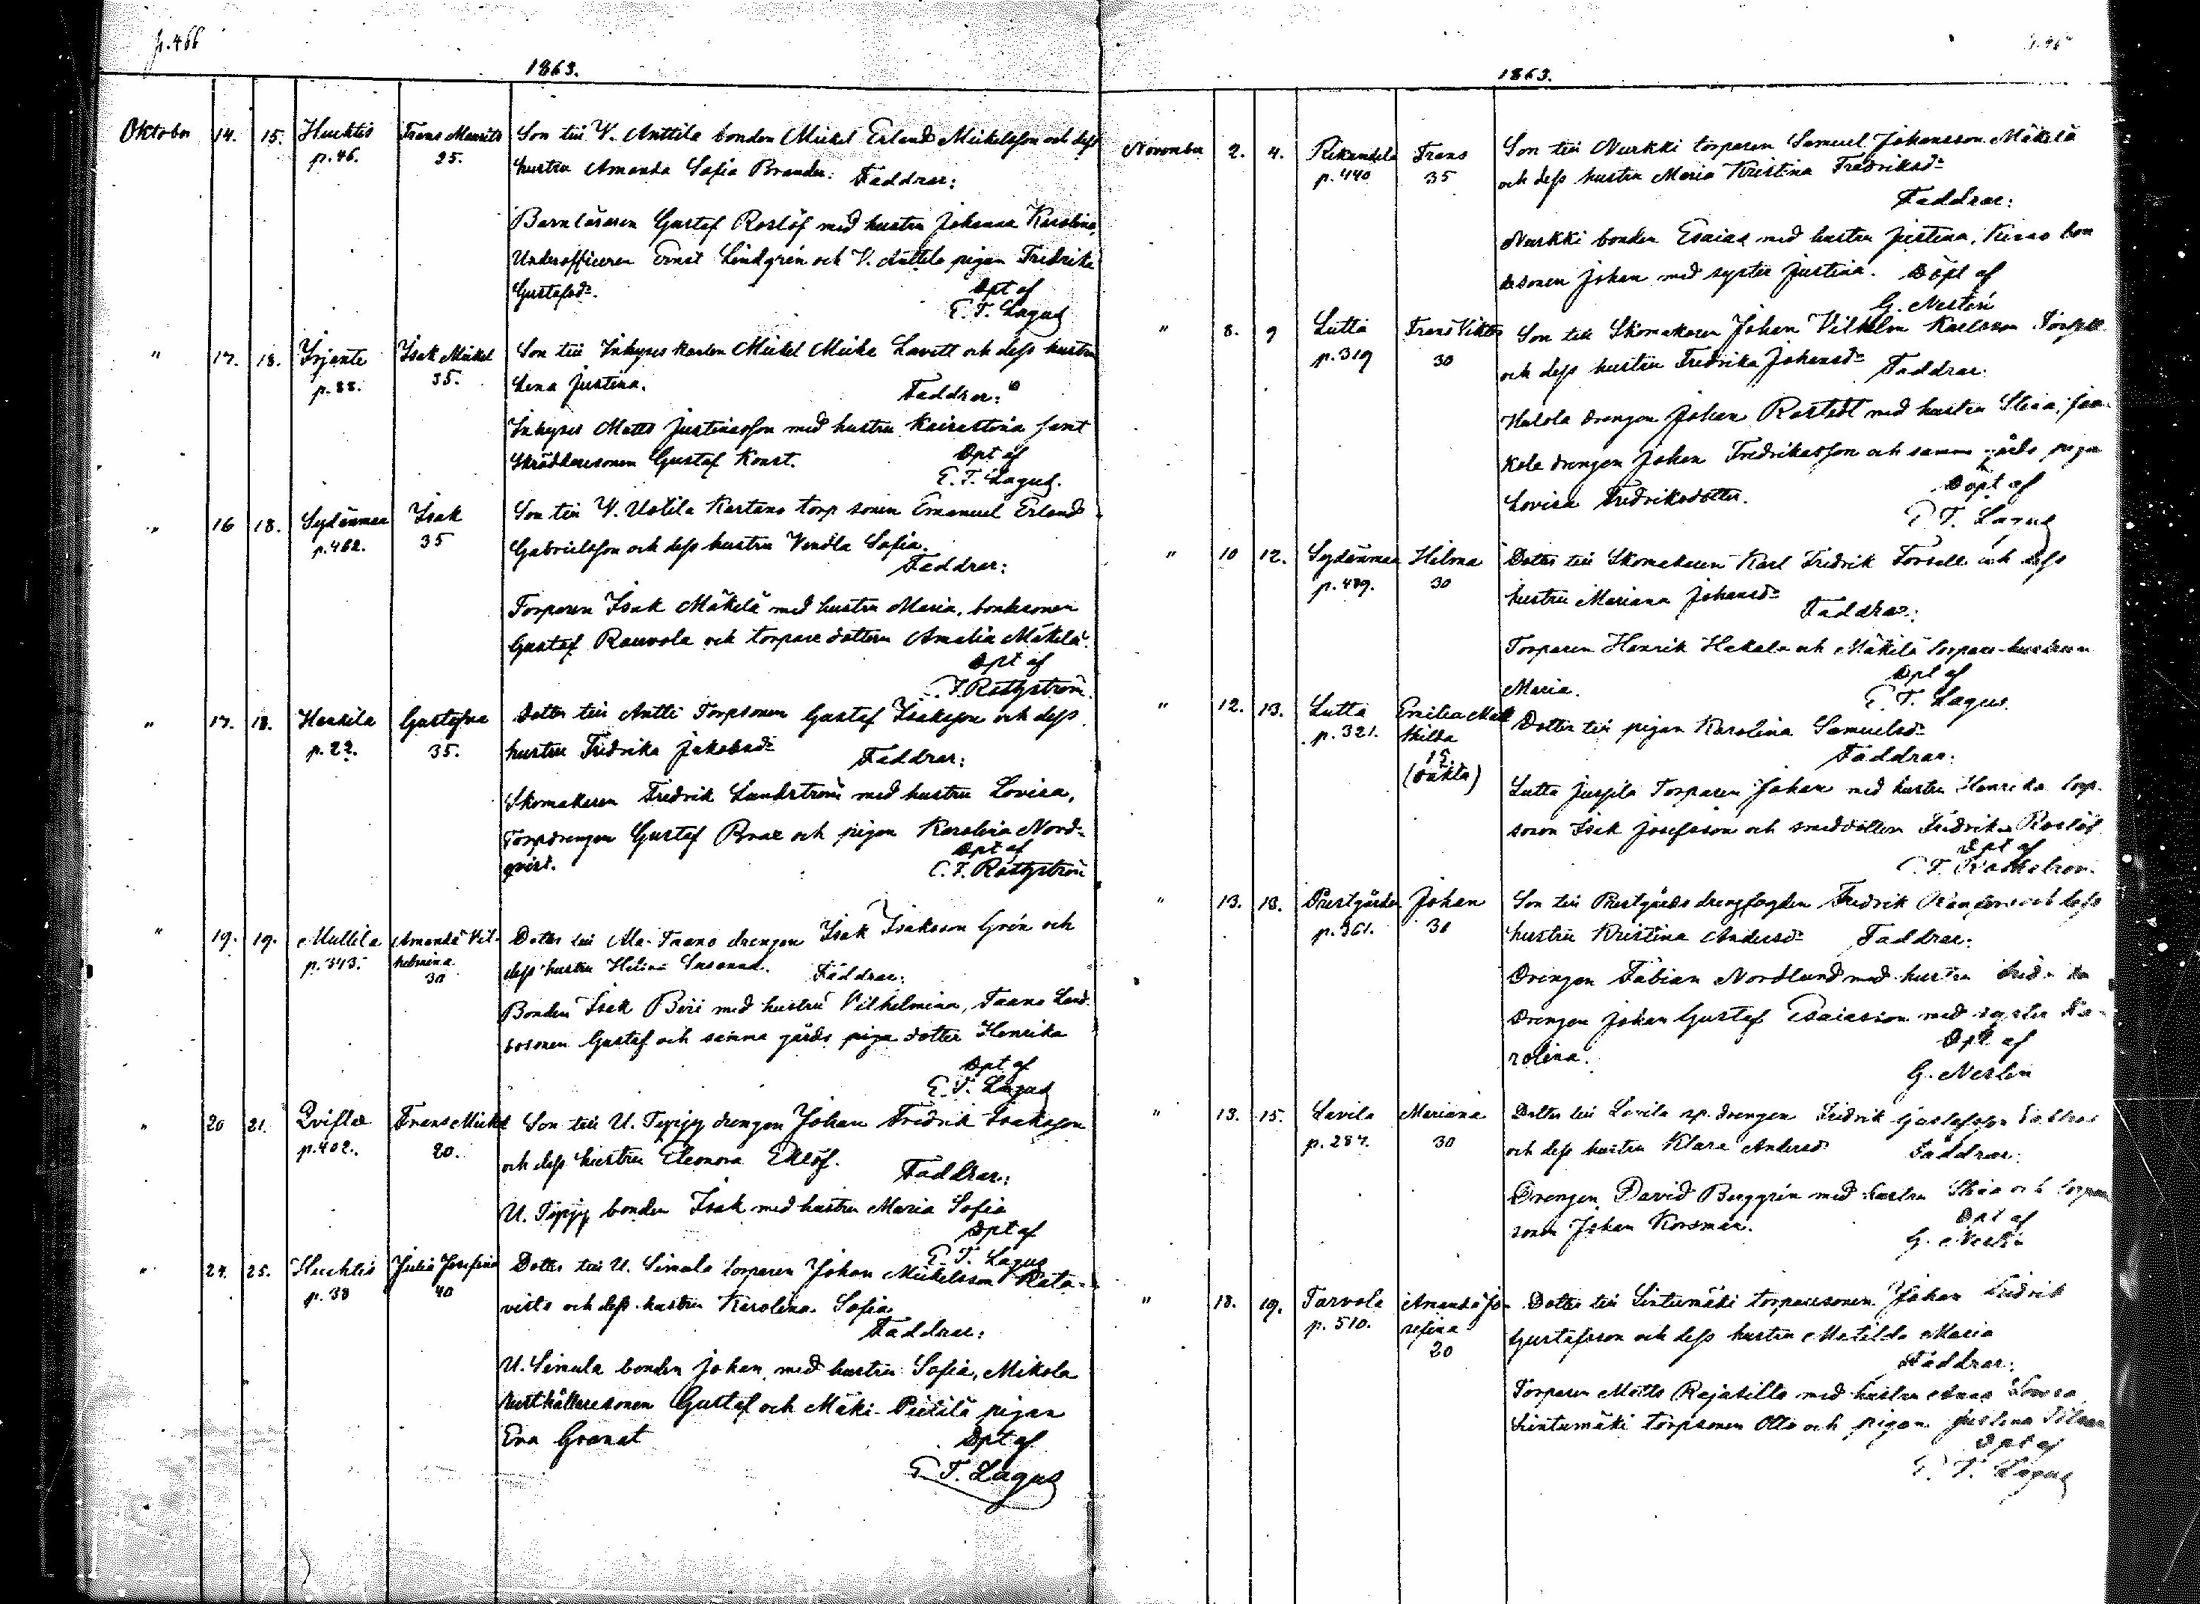 p.466
1863.
Oktober 14. 15. Huchtis Frans Maurits Son till V. Anttila bonden Mickel Erland Mickelsson och dess
p.46. 25. hustru Amanda Sofia Brander. Faddrar:
Barnläraren Gustaf Roslöf med hustru Johanna Karolina,
Underofficeren Ernst Lindgrén och V. Anttila pigan Fredrika
Gustafsd:r. Dpt af
E. T. Lagus
" 17. 18. Isak Mickel Son till Inhyses karlen Mickel Lavitt och dess hustru
p.88. 35. Lena Justina. Faddrar:
Inhyses Matts Justinasson med hustru samt
Skräddaresonen Gustaf Konst. Dpt af
E. T. Lagus.
" 16 18. Sydänmaa Isak Son till V. Uotila Kartano torp sonen Emanuel Erland
p.462. 35 Gabrielsson och dess hustru Vendla Sofia.
Faddrar:
Torparen Isak Mäkelä med hustru Maria, bondesonen
Gustaf Rauvola och torpare dottern Amalia Mäkelä.
Dpt af
C. F. Rothström.
" 17. 18. Heikkilä Gustafva Dotter till Antti Torpsonen Gustaf Isaksson och dess
p.22. 35. hustru Fredrika Jakobsd:r Faddrar:
Skomakaren Fredrik Lundström med hustru Lovisa,
Torpdrengen Gustaf och pigan Karolina Nord-
qvist. Dpt af
C. F. Rothström
" 19. 19. Mullila Amanda Vil- Dotter till Ala-Taano drengen Isak Isaksson Grön och
p.343. helmina dess hustru Helena Susanna. Faddrar:
30
Bonden Isak med hustru Vilhelmina, Taano Land-
bosonen Gustaf och samma gårds piga dotter Henrika
Dpt af
E. T. Lagus
" 20 21. Qviflax Frans Mickel Son till U. Typpy drengen Johan Fredrik Isaksson
p.402. 20. och dess hustru Eleonora Eklöf. Faddrar:
U. Typpy bonden Isak med hustru Maria Sofia
Dpt af
E. T. Lagus
" 24. 25. Huchtis Julia Josefina Dotter till U. Simula torparen Johan Mickelsson Rata-
p.38 40 visto och dess hustru Karolina Sofia
Faddrar:
U. Simula bonden Johan med hustru Sofia, Mikola
rusthållaresonen Gustaf och Mäki-Pietilä pigan
Eva Granat Dpt af
E. T. Lagus
1863.
November 2. 4. Frans Son till Nurkki torparen Samuel Johansson Mäkelä
p.440 35 och dess hustru Maria Kristina Fredriksd:r
Faddrar:
Nurkki bonden Esaias med hustru Justina, bon
desonen Johan med syster Justina. Döpt af
G. Neslin
" 8. 9 Lutta Frans Viktor Son till Skomakaren Johan Vilhelm Karlsson
p.319 30 och dess hustru Fredrika Johansd:r Faddrar:
drengen Johan Rostedt med hustru Stina,
drengen Johan Fredriksson och samma gårds pigan
Lovisa Fredriksdotter. Döpt af
E. T. Lagus
" 10 12. Sydänmaa Hilma Dotter till Skomakaren Karl Fredrik Forsell och dess
p.479. 30 hustru Mariana Johansd:r
Faddrar:
Torparen Henrik Hakala och Mäkilä torpare-hustrun
Maria. Dpt af
E. T. Lagus.
" 12. 13. Lutta Emilia Mat Dotter till pigan Karolina Samuelsd:r
p.321. hilda Faddrar:
(oäkta)
Lutta Torparen Johan med hustru Henrika torp-
sonen Isak Josefsson och smeddottern Fredrika Roslöf
Dpt af
C. F. Rothström.
" 13. 13. Prestgården Johan Son till Prestgårds drengfogden Fredrik och dess
p.361. 30 hustru Kristina Andersd:r Faddrar:
Drengen Fabian Nordlund med hustru
Drengen Johan Gustaf Esaiasson med syster Ka-
rolina. Dpt af
G. Neslin
" 13. 15. Lavila Mariana Dotter till Lavila sp. drengen Fredrik Gustafsson
p.287. 30 och dess hustru Klara Andersd:r Faddrar:
Drengen David Berggrén med hustru Stina och torpare
sonen Johan Korsman. Dpt af
G. Neslin
" 18. 19. Tarvola Amanda Jo- Dotter till Sintumäki torparesonen Johan Fredrik
p.510. sefina Gustafsson och dess hustru Matilda Maria
20 Faddrar:
Torparen Matts Rajasilta med hustru Anna Lovisa
Sintumäki torpsonen Otto och pigan Justina
Dpt af
E. T. Lagus